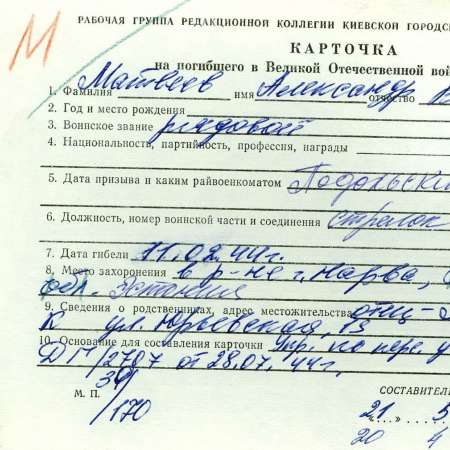 М
РАБОЧАЯ ГРУППА РЕДАКЦИОННОЙ КОЛЛЕГИИ КИЕВСКОЙ ГОРОДС
КАРТОЧКА
на погибшего в Великой Отечественной вой
1. Фамилия Матвеев имя Александр отчество В
2. Год и место рождения
3. Воинское звание рядовой
4. Национальность, партийность, профессия, награды
5. Дата призыва и каким райвоенкоматом Подольски
6. Должность, номер воинской части и соединения стрелок
7. Дата гибели 11.02.44г.
8. Место захоронения в р-не г. Нарва,
обл. Эстония
9. Сведения о родственниках, адрес местожительства отец-
К ул. Юрьевская, 13
10. Основание для составления карточки Упр. по перс.
ДП/2707 от 28.07.44г.
М. П.
СОСТАВИТЕЛ
/170
„21" 5
20 4